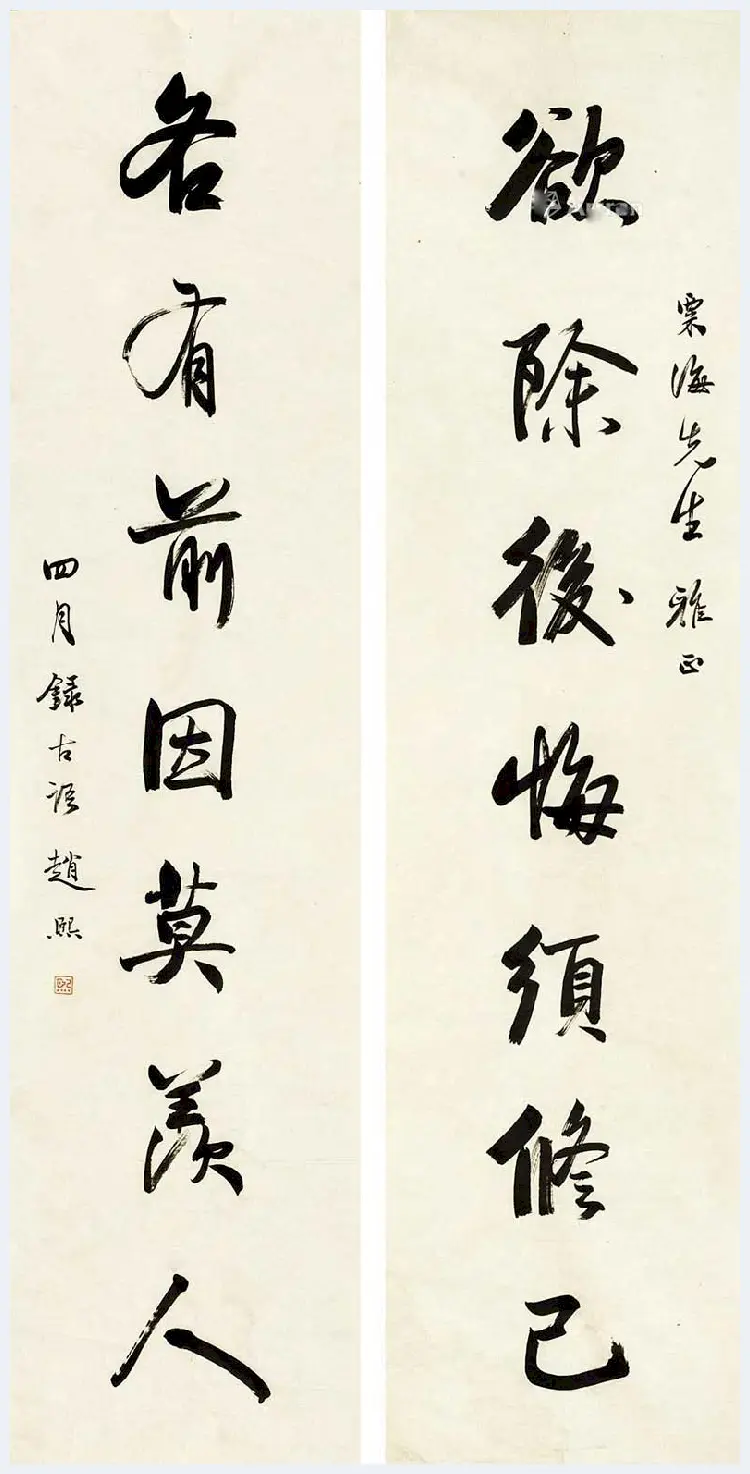 欲除後悔須修己
栗海先生雅正
各有前因莫羨人
四月録古語趙熙
熙